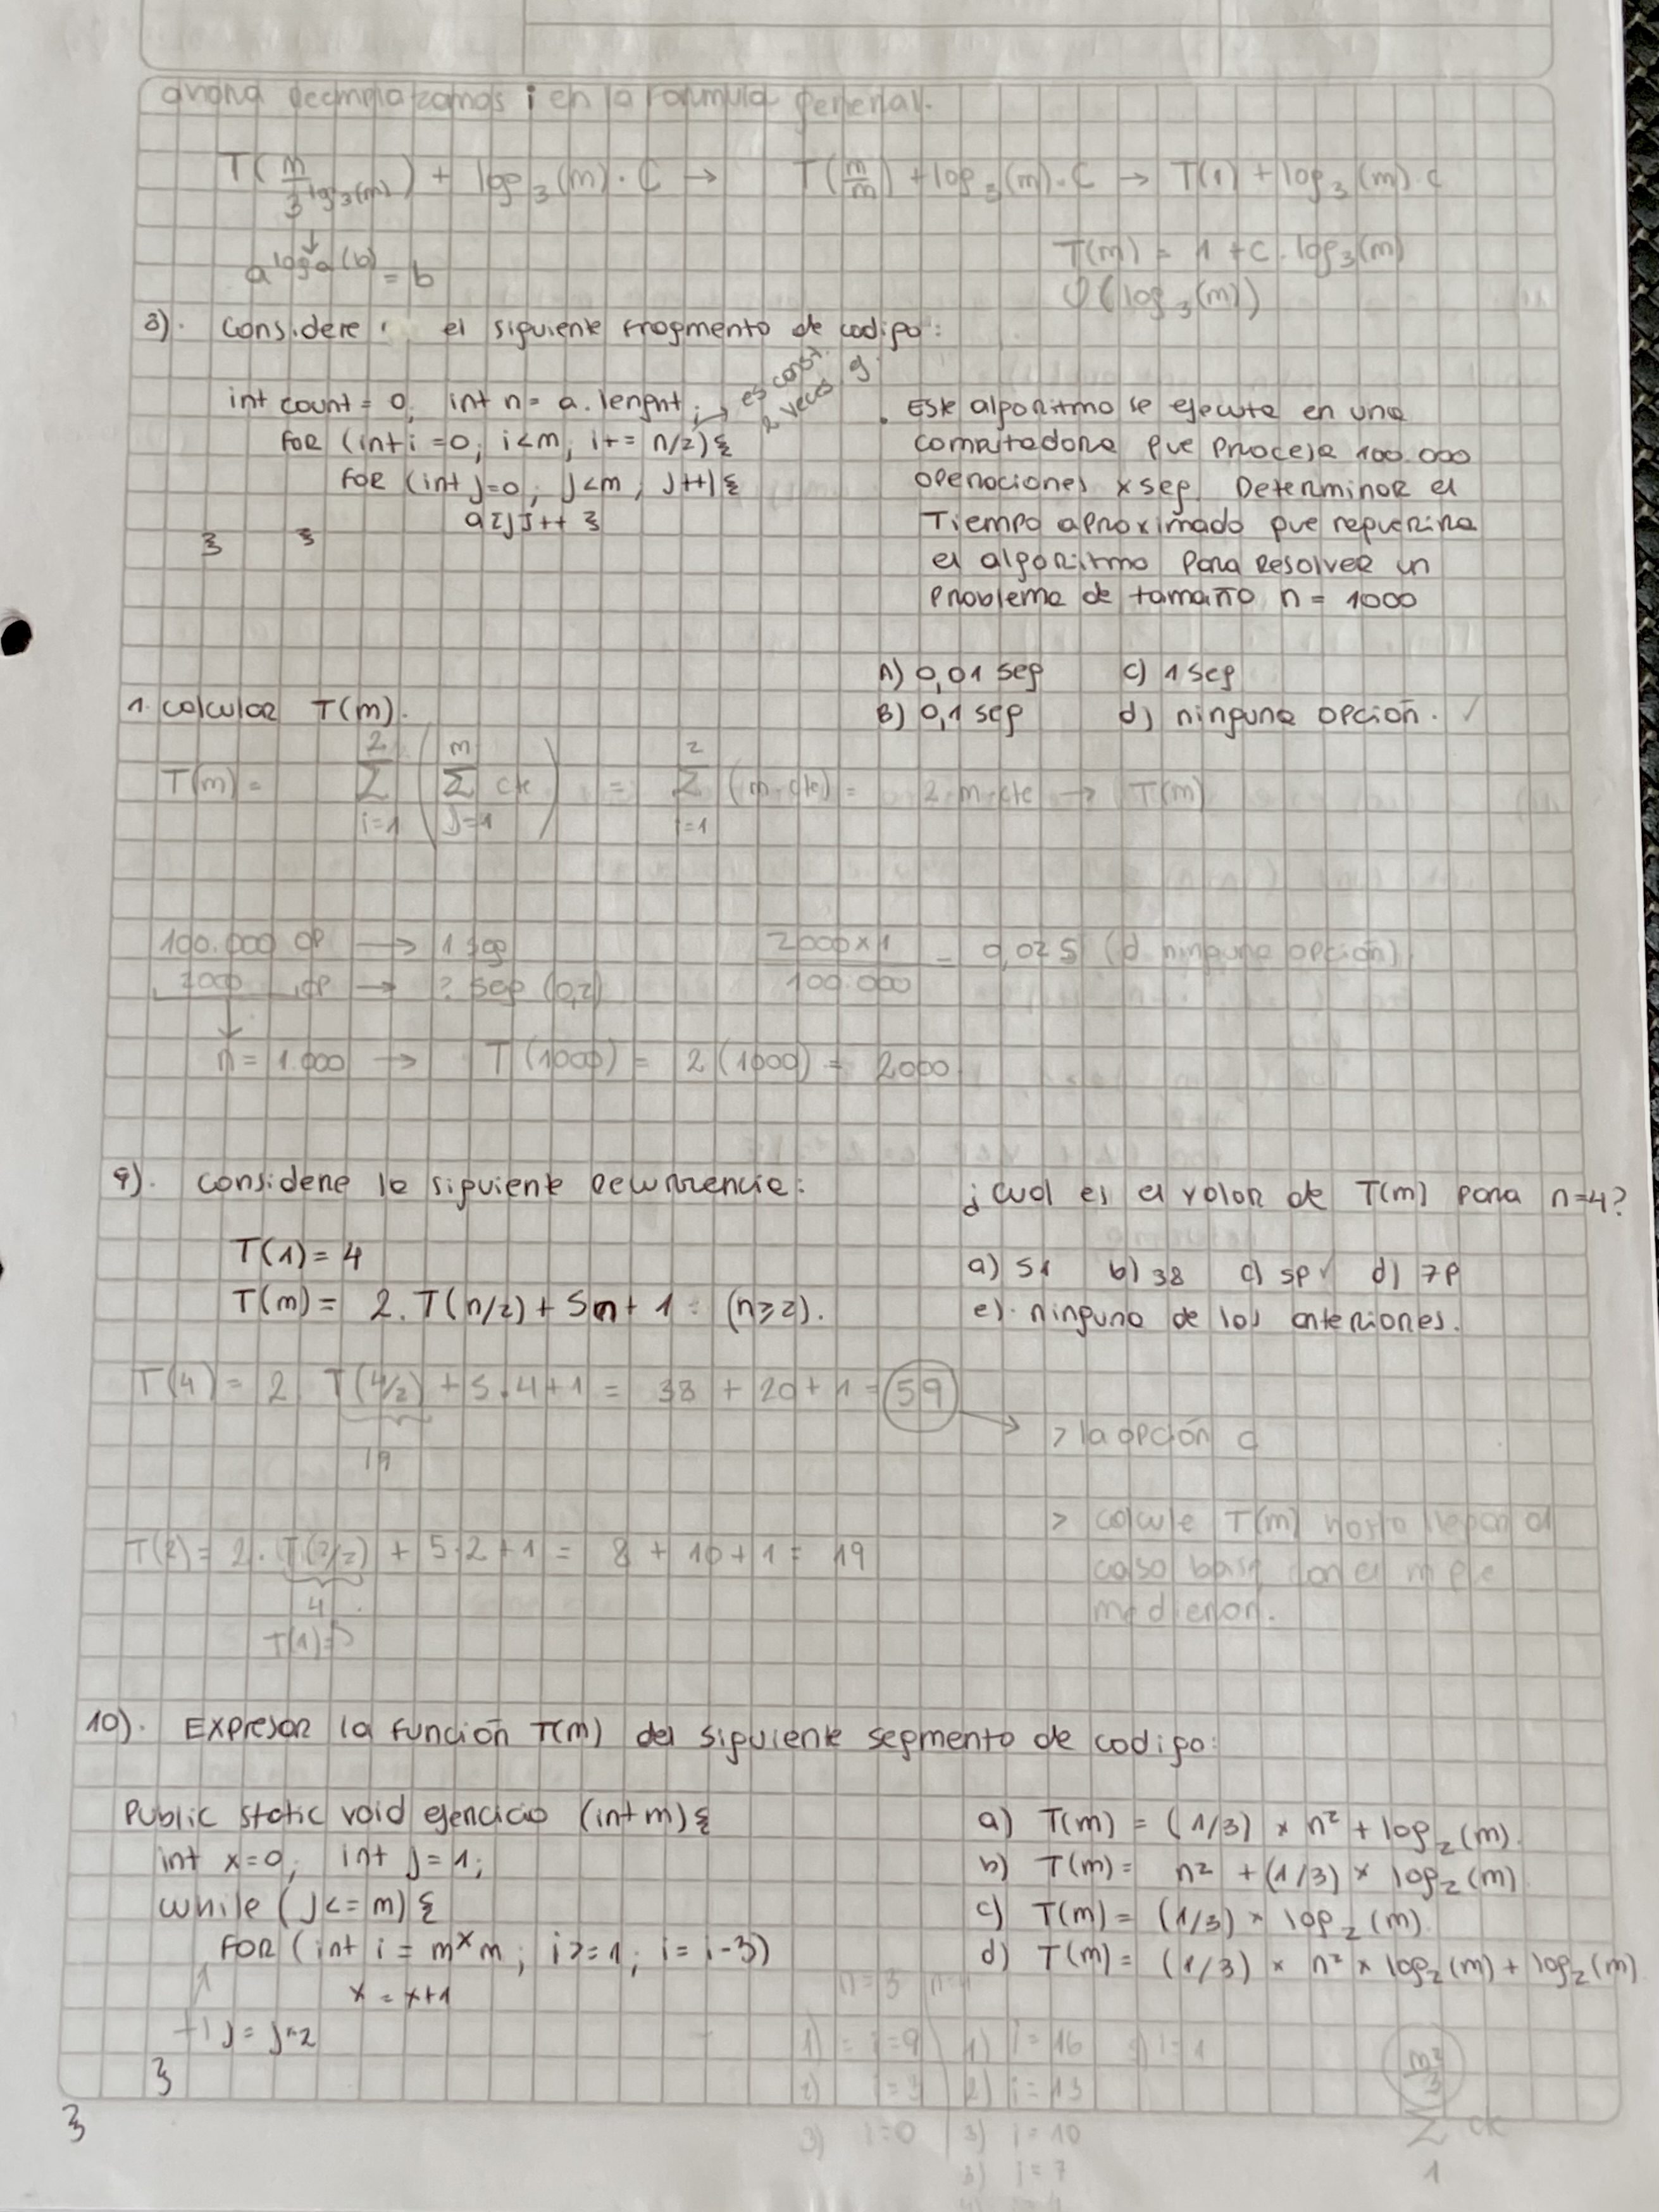 ahora reemplazamos i en la formula general.
T(m/3^log3(m)) + log3(m) . C → T(m/m) + log3(m) . C → T(1) + log3(m) . c
a^loga(b) = b
T(m) = 1 + c . log3(m)
O(log3(m))
8). Considere el siguiente fragmento de codigo:
int count = 0; int n = a. lenght; → es const. 2 veces
FOR (int i = 0; i < m; i += n/2) {
FOR (int j = 0; j < m; j++) {
a[j]++ }
} }
. Este algoritmo se ejecuta en una
computadora que procesa 100.000
operaciones x seg. Determinar el
Tiempo aproximado que requerira
el algoritmo para resolver un
problema de tamaño n = 1000
A) 0,01 seg C) 1 seg
B) 0,1 seg d) ninguna opción. ✓
1. calcular T(m).
T(m) = 2 Σ i=1 ( m Σ j=1 cte ) = 2 Σ i=1 (m . cte) = 2 . m . cte → T(m)
100.000 op → 1 seg
2000 op → ? seg (0,2)
2000 x 1 / 100.000 = 0,02 S (d ninguna opción)
n = 1.000 → T(1000) = 2 (1000) = 2000
9). considere la siguiente recurrencia: ¿cual es el valor de T(m) para n=4?
T(1) = 4
T(m) = 2. T(n/2) + 5n + 1 (n≥2).
a) 51 b) 38 c) 59 ✓ d) 79
e). ninguna de las anteriores.
T(4) = 2. T(4/2) + 5.4 + 1 = 38 + 20 + 1 = 59
19
> la opción c
T(2) = 2. T(2/2) + 5.2 + 1 = 8 + 10 + 1 = 19
4
T(1) =
> calcule T(m) hasta llegar al
caso base, con el m que
me dieron.
10). Expresar la función T(m) del siguiente segmento de codigo:
Public static void ejercicio (int m) {
int x=0; int j = 1;
while (j <= m) {
FOR (int i = m*m; i >= 1; i = i-3)
x = x+1
+1 j = j*2
}
}
a) T(m) = (1/3) x n² + log2(m).
b) T(m) = n² + (1/3) x log2(m)
c) T(m) = (1/3) x log2(m).
d) T(m) = (1/3) x n² x log2(m) + log2(m)
n = 3 n=4
1) = i=9 1) i = 16 i = 1
2) i=3 2) i = 13
3) i=0 3) i = 10
i = 7
m²/3
Σ cte
1